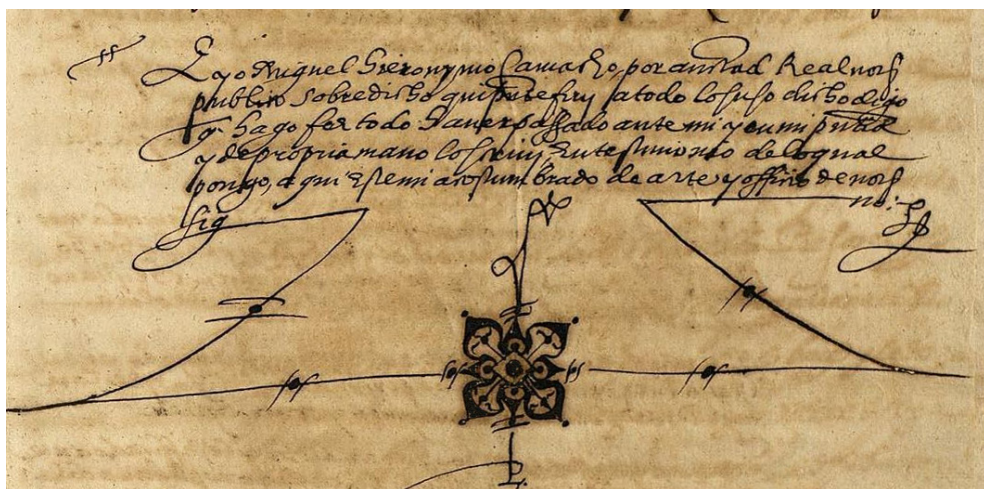 E yo Miguel Hieronymo Camacho, por auctad Real noŕ
publico sobredicho qui pnte fuy a todo lo suso dicho digo
y hago fee todo haver passado ante mi y en mi pntia
y de propria mano lo screui, En testimonio de lo qual
pongo, aqui este mi acostumbrado de arte y officio de noŕ
Sig no: